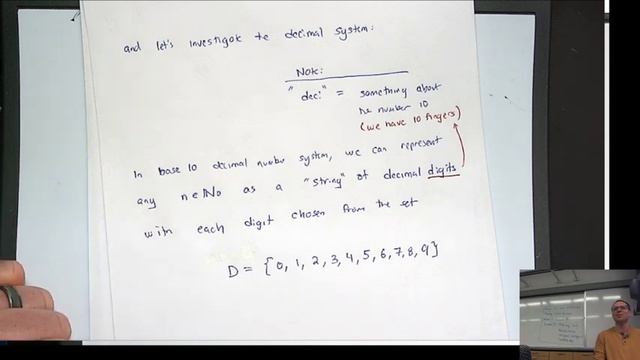 and let's investigate te decimal system:
Note:
"deci" = something about
the number 10
(we have 10 fingers)
In base 10 decimal number system, we can represent
any n ∈ ℕ₀ as a "string" of decimal digits
with each digit chosen from the set
D = {0, 1, 2, 3, 4, 5, 6, 7, 8, 9}